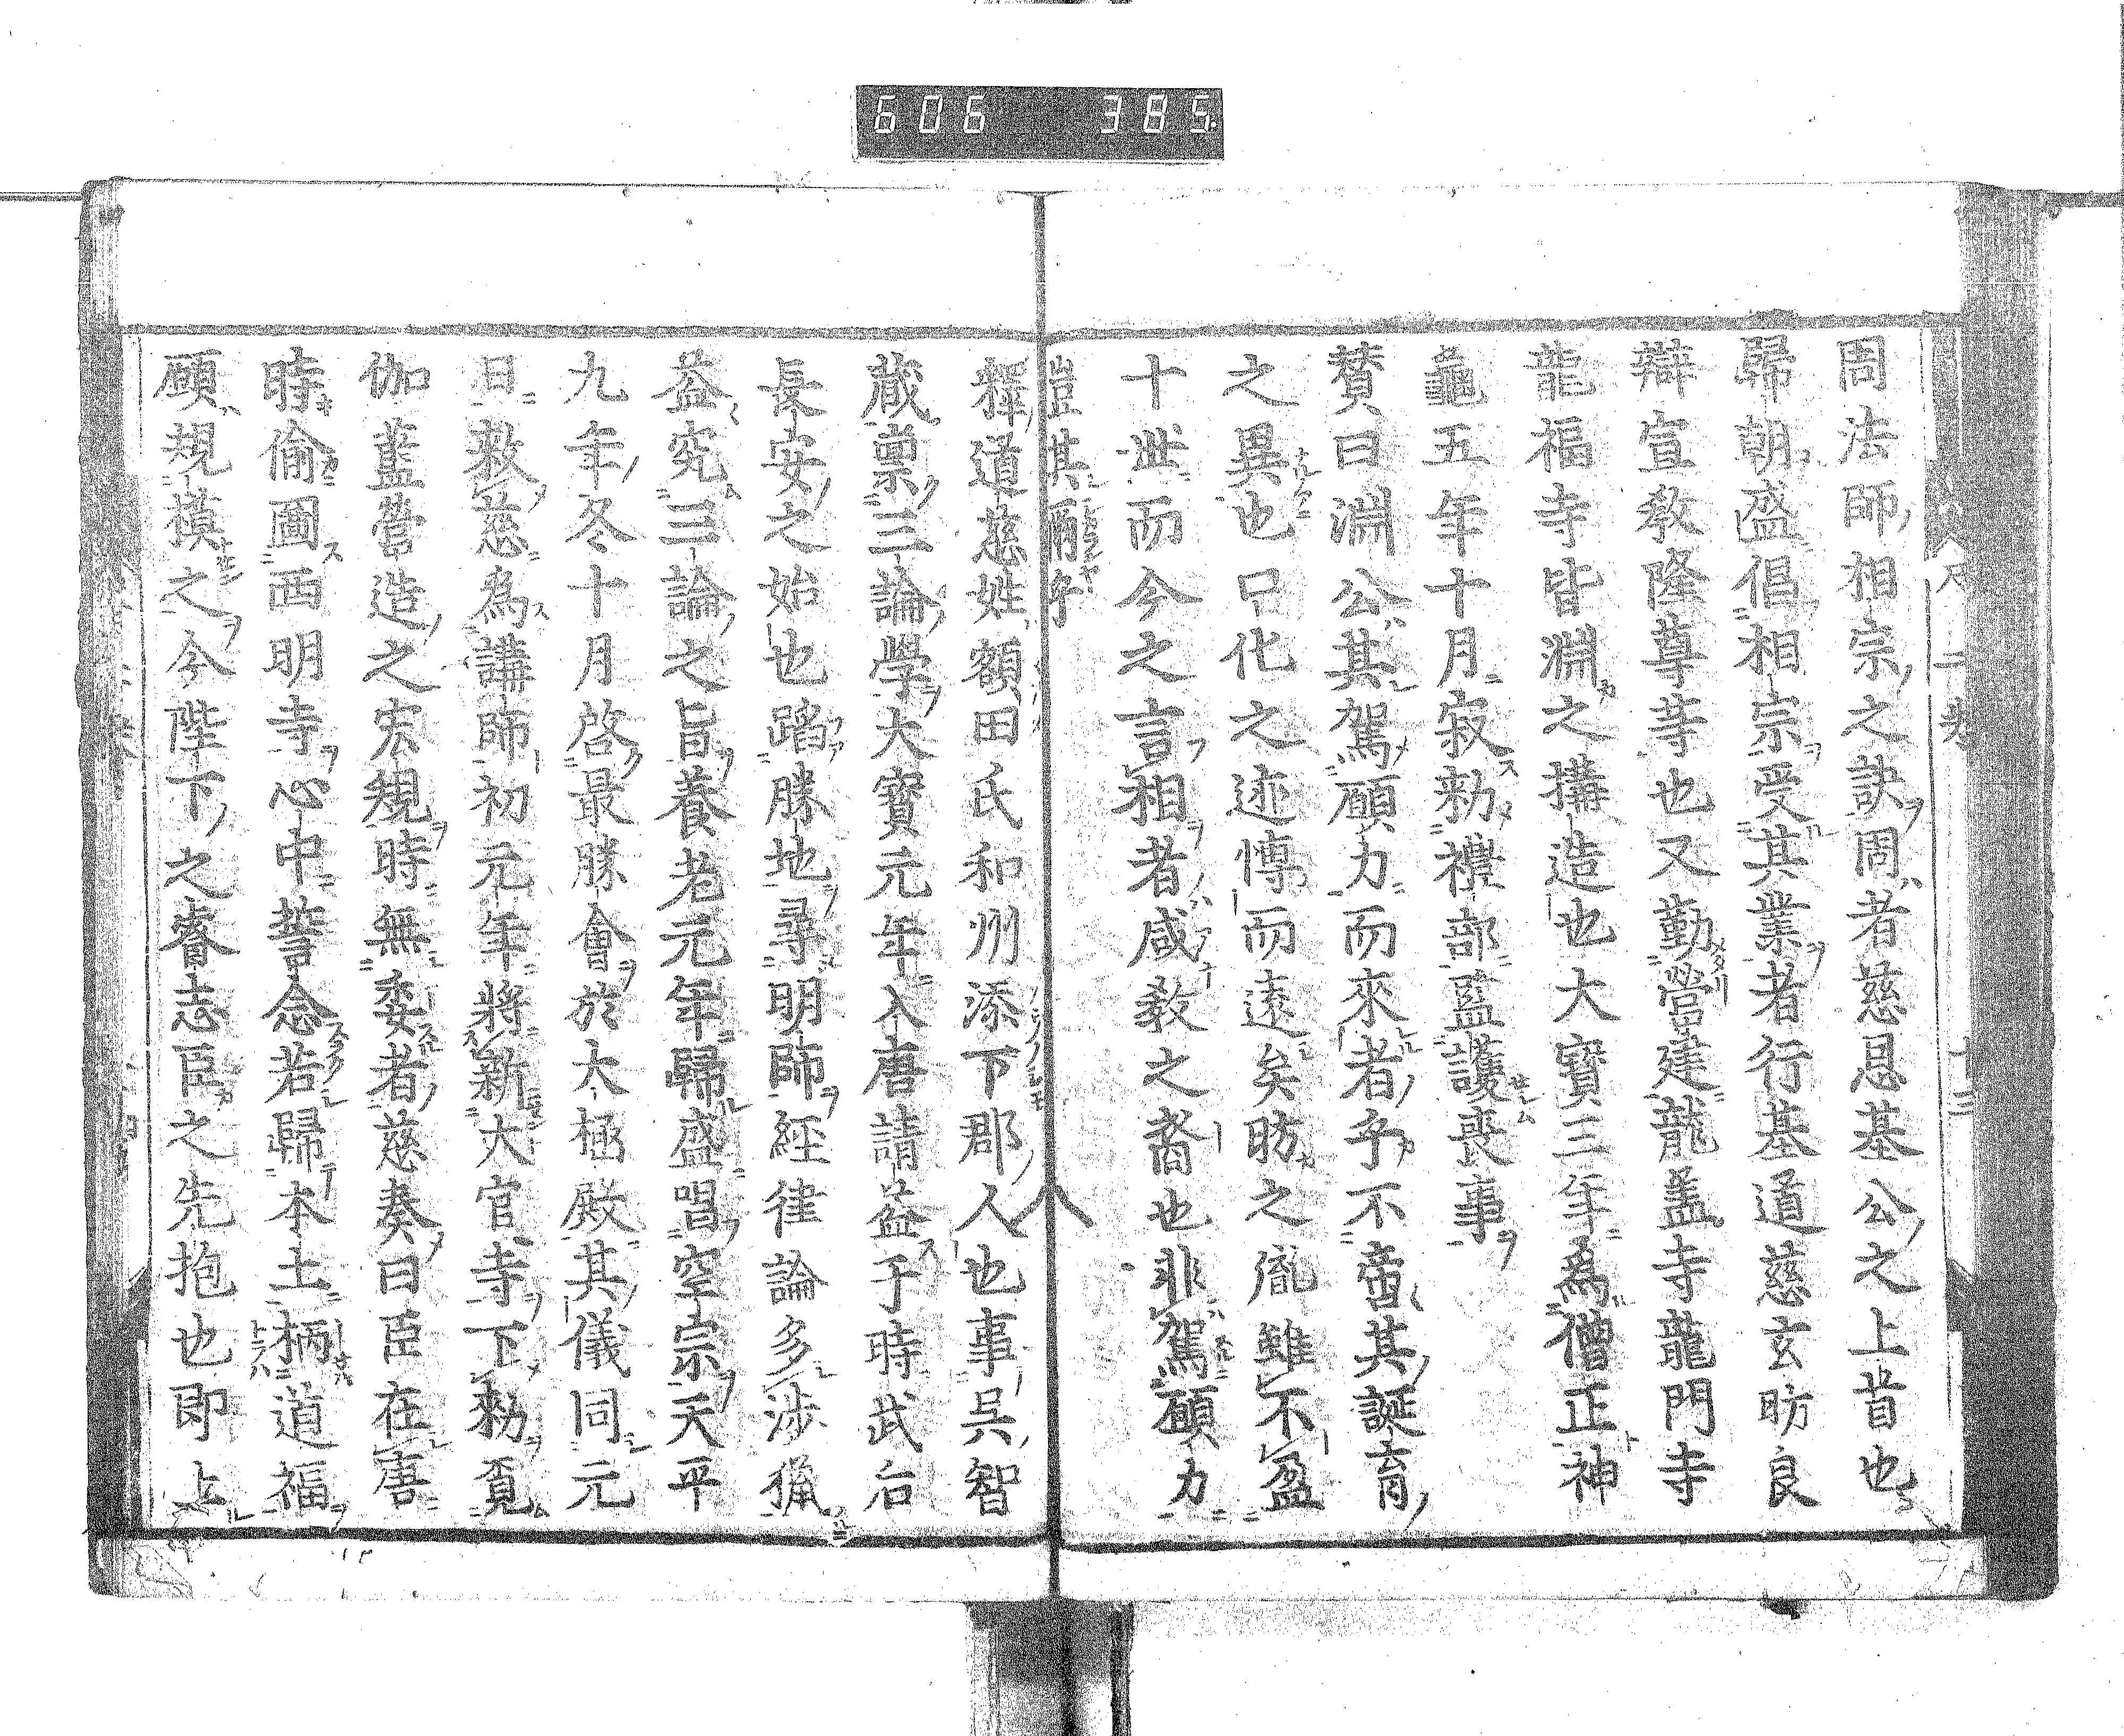 606 385
周法師相宗之訣周者慈恩基公之上首也
歸朝盛倡相宗受其業者行基道慈玄昉良
辯宣教隆尊等也又勤營建龍蓋寺龍門寺
龍福寺皆淵之搆造也大寶三年爲僧正神
龜五年十月寂勑禮部監護喪事
賛曰淵公其駕願力而來者乎不啻其誕育
之異也已化之迹愽而遠矣昉之胤雖不盈
十世而今之言相者咸教之裔也非駕願力
豈其爾乎
釋道慈姓額田氏和州添下郡人也事吳智
藏禀三論學大寶元年入唐請益于時武后
長安之始也蹈勝地尋明師經律論多涉獵
益究三論之旨養老元年歸盛唱空宗天平
九年冬十月啓最勝會於大極殿其儀同元
日敕慈為講師初元年將新大官寺下勑覓
伽藍營造之宏規時無委者慈奏曰臣在唐
時偷圖西明寺心中誓念若歸本土柄道福
願規橅之今陛下之睿志臣之先抱也即上